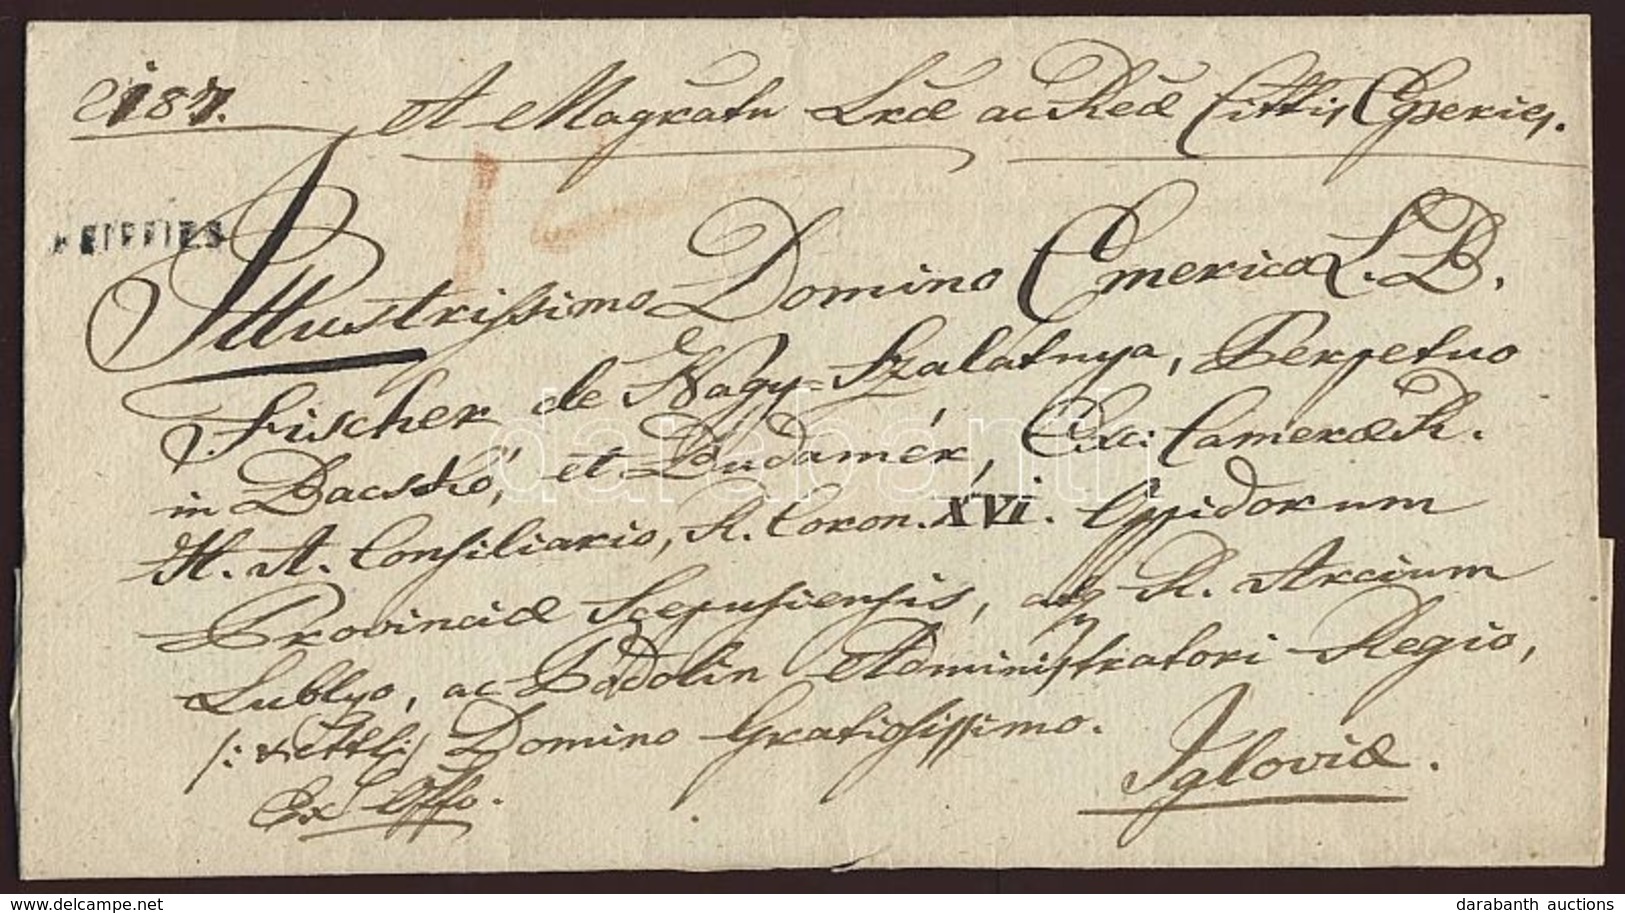 A Magratu Lræ ac Reæ Cittis Epperies.
Illustrissimo Domino Emerico L. B.
Fischer de Nagy=Szalátnya, Perpetuo
in Bacskó, et Budamér, Exc: Cameræ R.
H. A. Consiliario, R. Coron. XVI. Oppidorum
Provinciæ Scepusiensis, atq R. Arcium
Lublyo, ac Podolin Administratori Regio,
Domino Gratiosissimo.
Ex Offo.
Igloviæ.
darabanth
www.delcampe.net
darabanth auctions